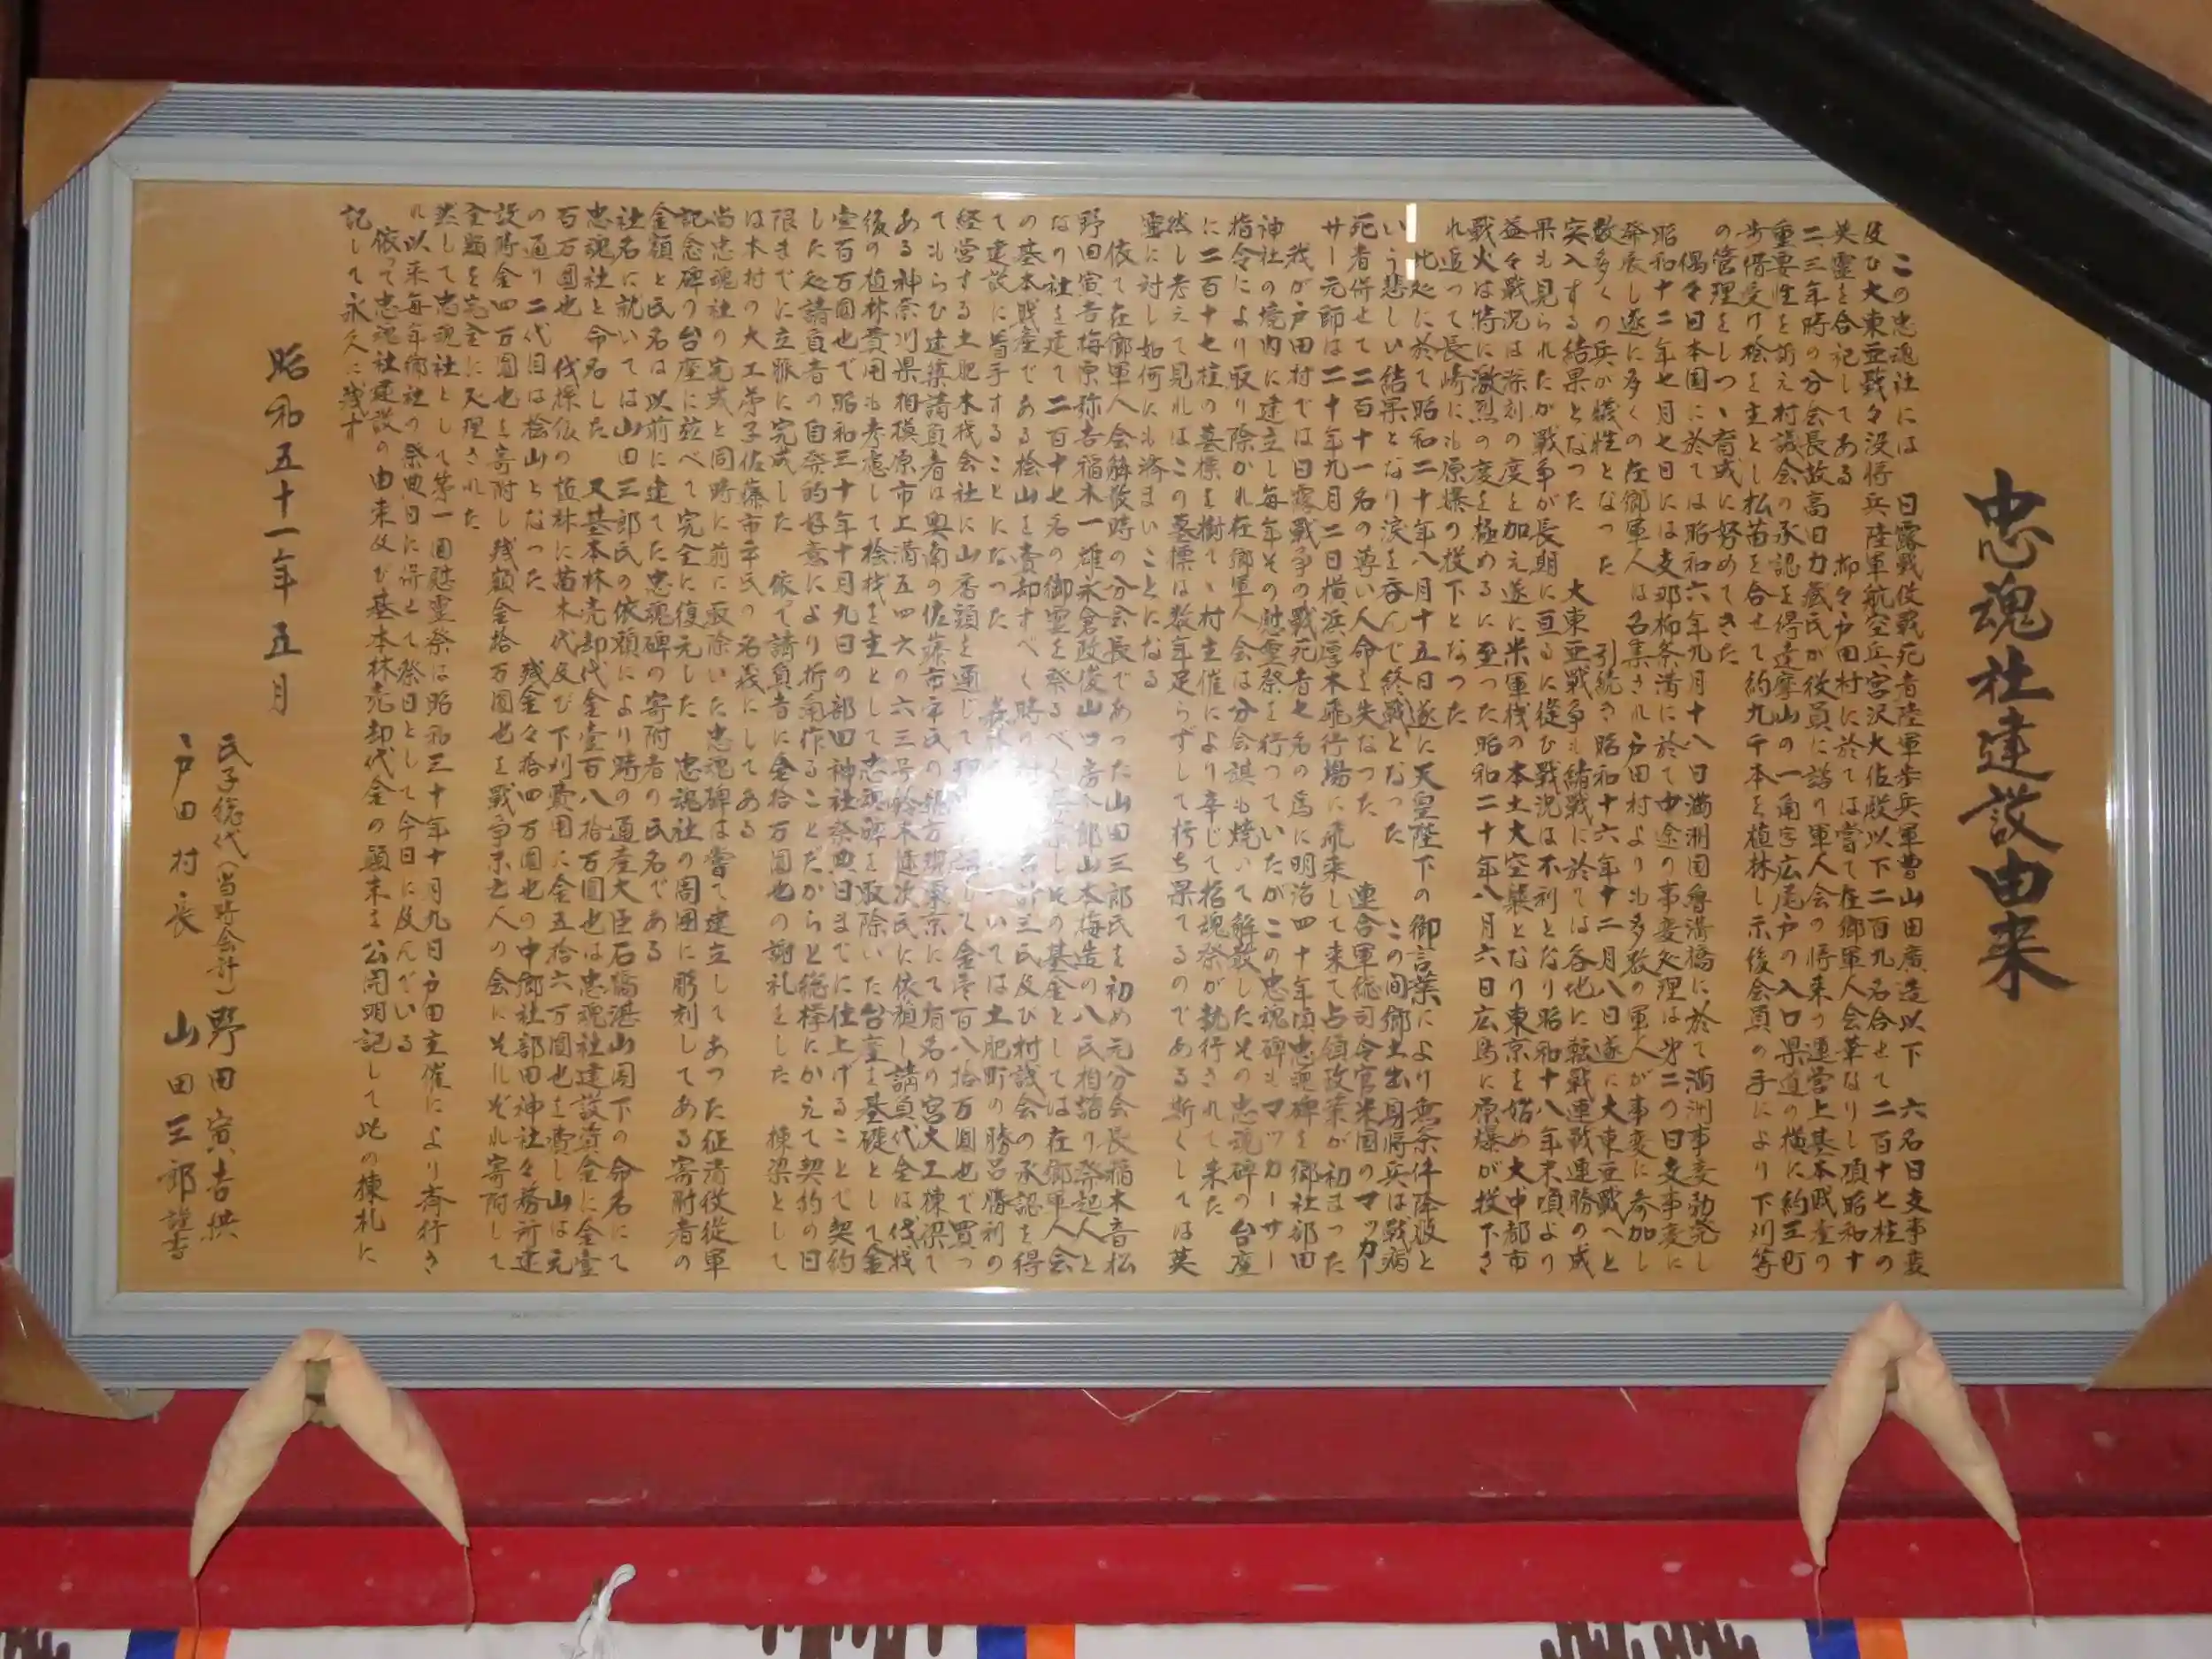 忠魂社建設由来
この忠魂社には 日露戦役戦死者陸軍歩兵軍曹山田廣造以下 六名日支事変
及び大東亜戦々没将兵陸軍航空兵宮沢大佐殿以下二百九名合せて二百十七柱の
英霊を合記してある 抑々戸田村に於ては嘗て在郷軍人会華なりし頃昭和十
二三年時の分会長故高田力蔵氏が役員に諮り軍人会の将来の運営上基本財産の
重要性を訴え村議会の承認を得達摩山の一角字広尾戸の入口県道の横に約五町
歩借受け桧を主とし松苗を合せて約九千本を植林し爾後会員の手により下刈等
の管理をしつゝ育成に努めてきた
偶々日本国に於ては昭和六年九月十八日満洲国魯溝橋に於て満洲事変勃発し
昭和十二年七月七日には支那柳条溝に於て中途の事変処理は第二の日支事変に
発展し遂に多くの在郷軍人は召集され戸田村よりも多数の軍人が事変に参加し
数多くの兵が犠牲となった 引続き昭和十六年十二月八日遂に大東亜戦へと
突入する結果となった 大東亜戦争も緒戦に於ては各地に転戦連戦連勝の成
果も見られたが戦争が長期に亘るに従ひ戦況は不利となり昭和十八年末頃より
益々戦況は深刻の度を加え遂に米軍機の本土大空襲となり東京を始め大中都市
戦火は特に激烈の度を極めるに至った昭和二十年八月六日広島に原爆が投下さ
れ追って長崎にも原爆の投下となった
此処に於て昭和二十年八月十五日遂に天皇陛下の御言葉により無条件降服と
いう悲しい結果となり涙を呑んで終戦となった この間郷土出身将兵は戦病
死者併せて二百十一名の尊い人命を失なった 連合軍総司令官米国のマッカー
サー元師は二十年九月二日横浜厚木飛行場に飛来して来て占領政策が初まった
我が戸田村では日露戦争の戦死者七名の為に明治四十年頃忠魂碑を郷社部田
神社の境内に建立し毎年その慰霊祭を行っていたがこの忠魂碑もマッカーサー
指令により取り除かれ在郷軍人会は分会旗も焼いて解散したその忠魂碑の台座
に二百十七柱の墓標を樹てゝ村主催により辛じて招魂祭が執行されて来た
然し考えて見ればこの墓標は数年足らずして朽ち果てるのである斯くしては英
霊に対し如何にも済まいことになる
依て在郷軍人会解散時の分会長であった山田三郎氏を初め元分会長稲木音松
野田寅吉梅原弥吉稲木一雄永倉政俊山口房郎山本梅造の八氏相諮り発起人と
なり社を建て二百十七名の御霊を祭るべくしその基金としては在郷軍人会
の基本財産である桧山を売却すべく時の計三氏及び村議会の承認を得
て建設に着手することになった 森林いては土肥町の勝呂勝利の
経営する土肥木材会社に山番頭を通じて理して金壱百八拾万圓也で買っ
てもらひ建築請負者は奥南の佐藤市平氏の東京にて有名の宮大工棟梁で
ある神奈川県相模原市上溝五四六の六三号鈴木達次氏に依頼し請負代金は伐栈
後の植林費用も考慮して桧材を主として忠魂碑を取除いた台座を基礎として金
壱百万圓也で昭和三十年十月九日の部田神社祭典日までに仕上げることで契約
した処請負者の自発的好意により折角作ることだからと総欅にかえて契約の日
限までに立派に完成した 依て請負者に金拾万圓也の謝礼をした 棟梁として
は本村の大工弟子佐藤市平氏の名義にしてある
尚忠魂社の完成と同時に前に取除いた忠魂碑は嘗て建立してあつた征清役従軍
記念碑の台座に並べて完全に復元した 忠魂社の周囲に彫刻してある寄附者の
金額と氏名は以前に建てた忠魂碑の寄附者の氏名である
社名に就いては山田三郎氏の依頼により時の通産大臣石橋湛山閣下の命名にて
忠魂社と命名した 又基本林売却代金壹百八拾万圓也は忠魂社建設資金に金壹
百万圓也 伐採後の植林に苗木代及び下刈費用に金五拾六万圓也を費し山は元
の通り二代目は桧山となった 残金々拾四万圓也の中郷社部田神社々務所建
設時金四万圓也を寄附し残額金拾万圓也を戦争未亡人の会にそれぞれ寄附して
全額を完全に処理された
然して忠魂社として第一回慰霊祭は昭和三十年十月九日戸田主催により斉行さ
れ以来毎年郷社の祭典日に併せて祭日として今日に及んでいる
依って忠魂社建設の由来及び基本林売却代金の顛末を公開明記して此の棟札に
記して永久に残す
昭和五十一年五月
氏子総代(当時会計)野田寅吉供
戸田村長 山田三郎謹書